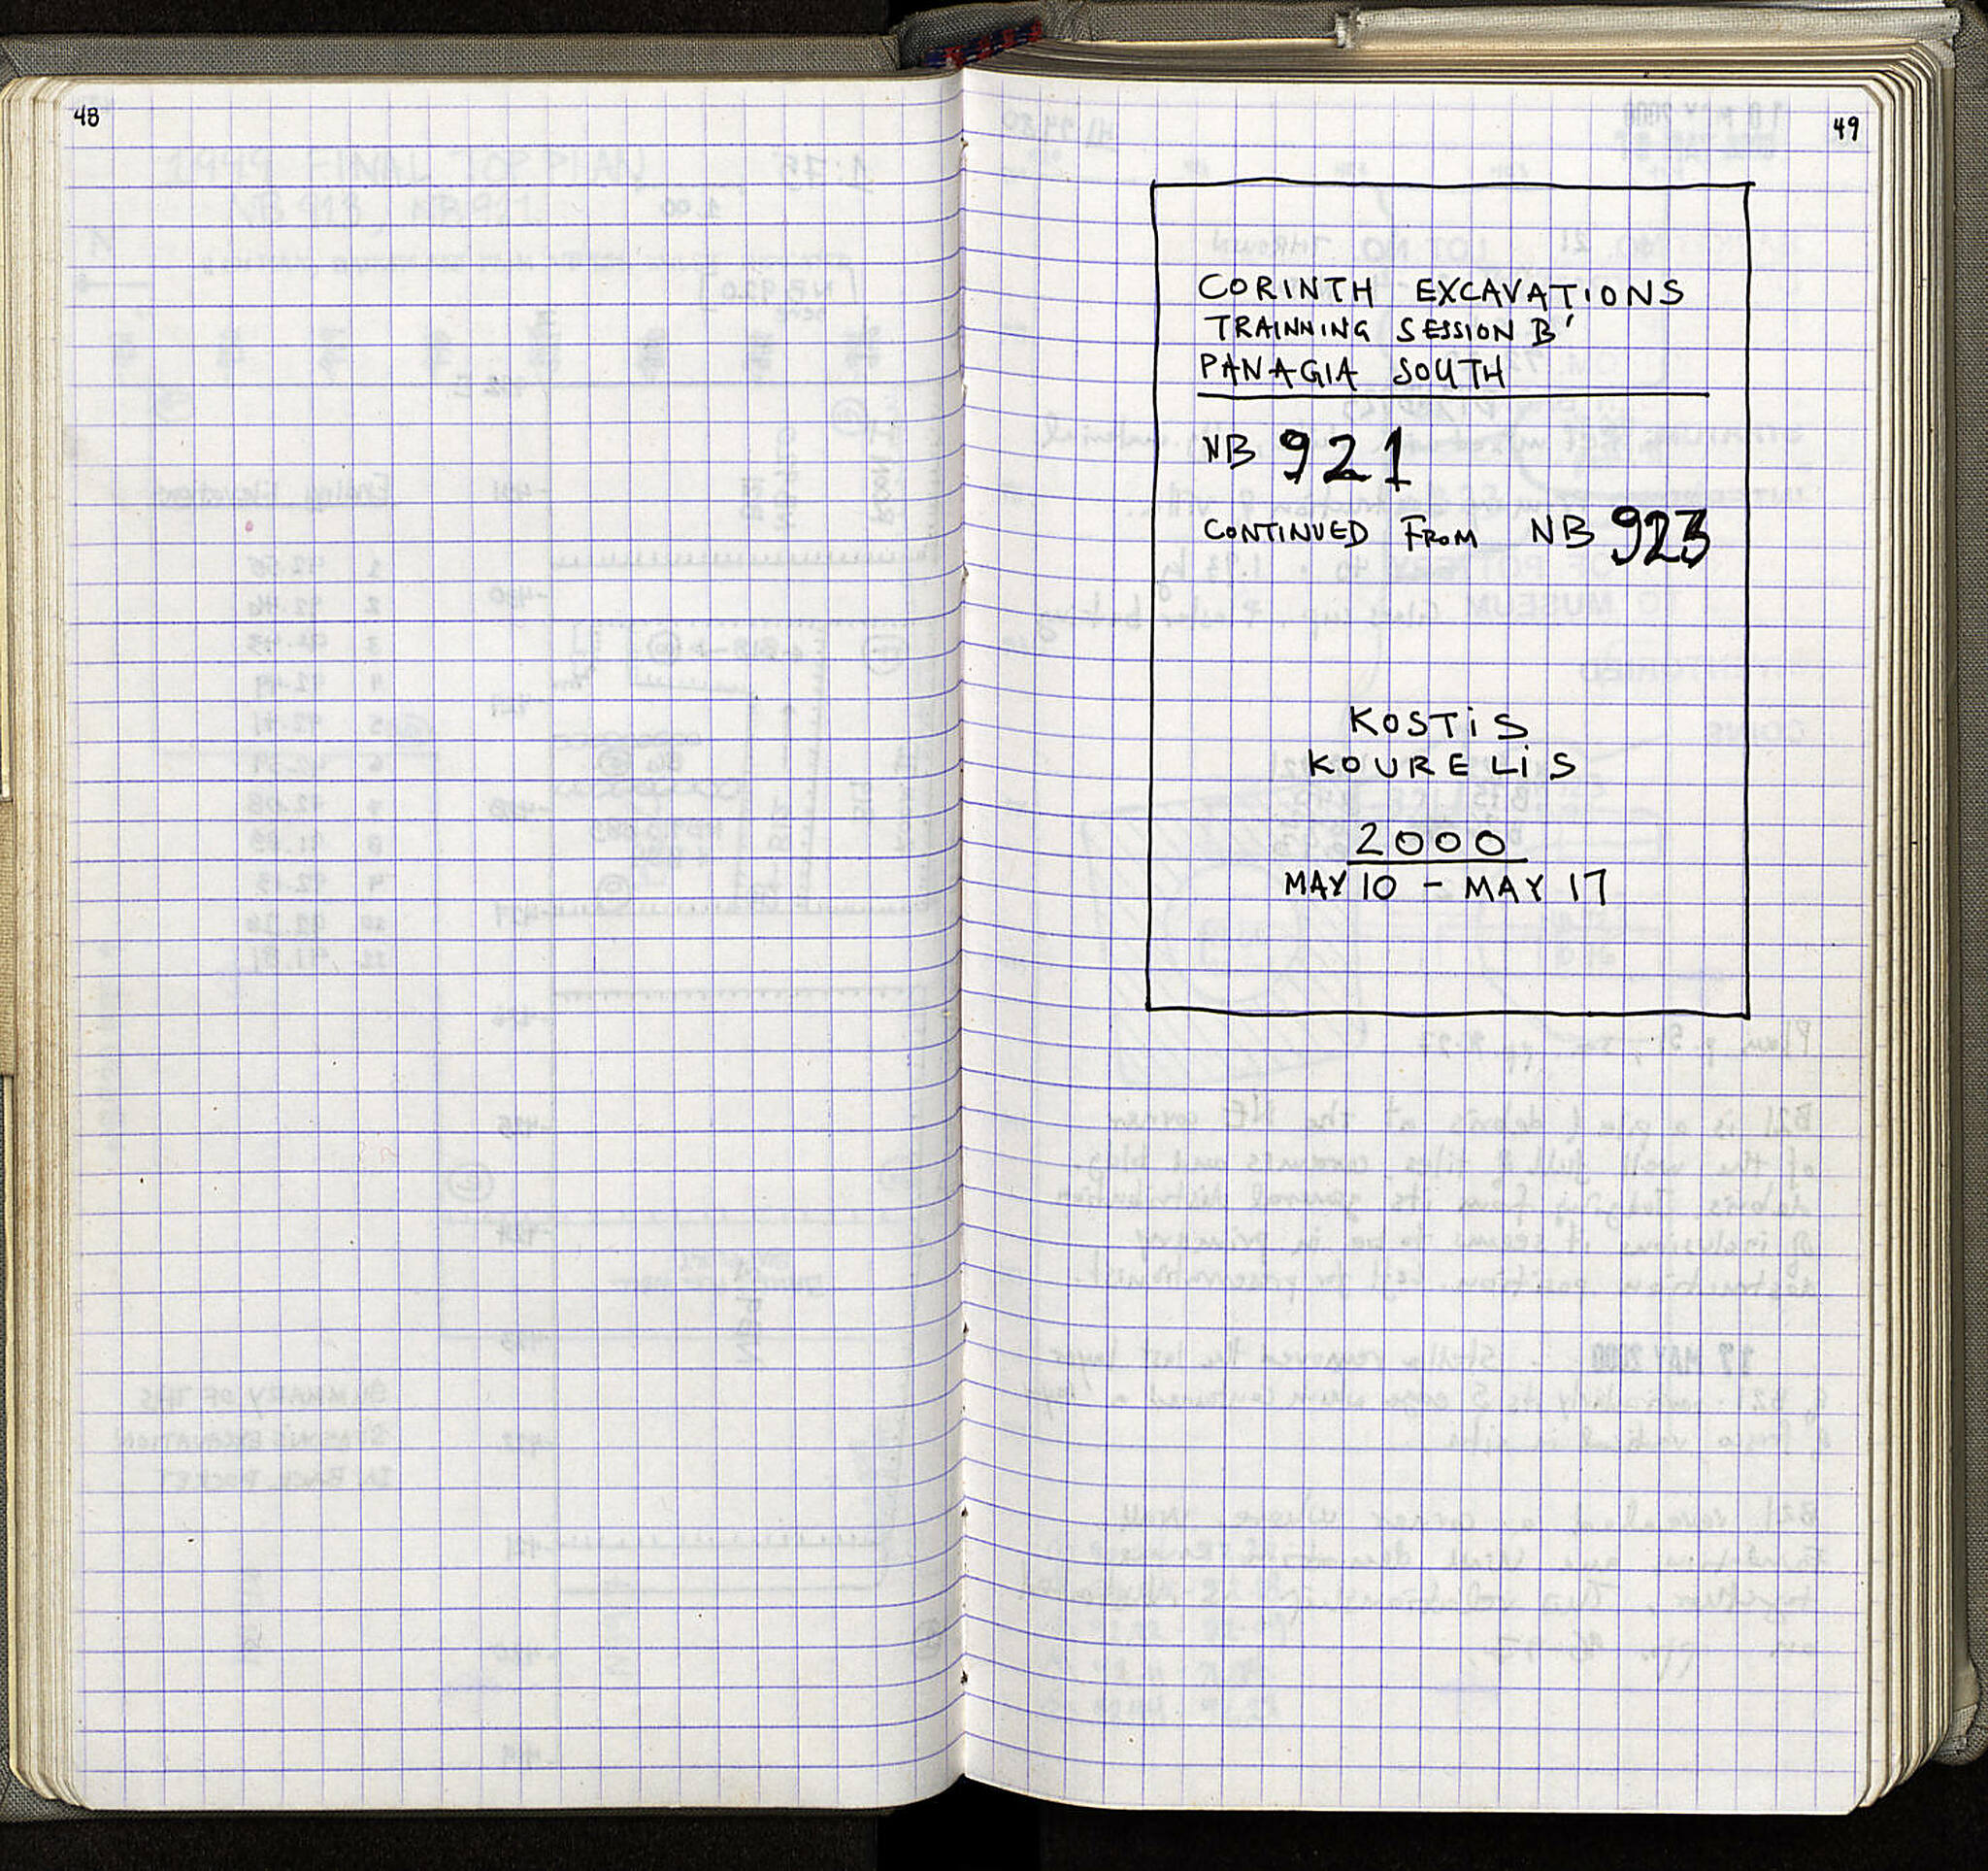 48
49
CORINTH EXCAVATIONS
TRAINNING SESSION B'
PANAGIA SOUTH
NB 921
CONTINUED FROM NB 923
KOSTIS
KOURELIS
2000
MAY 10 - MAY 17